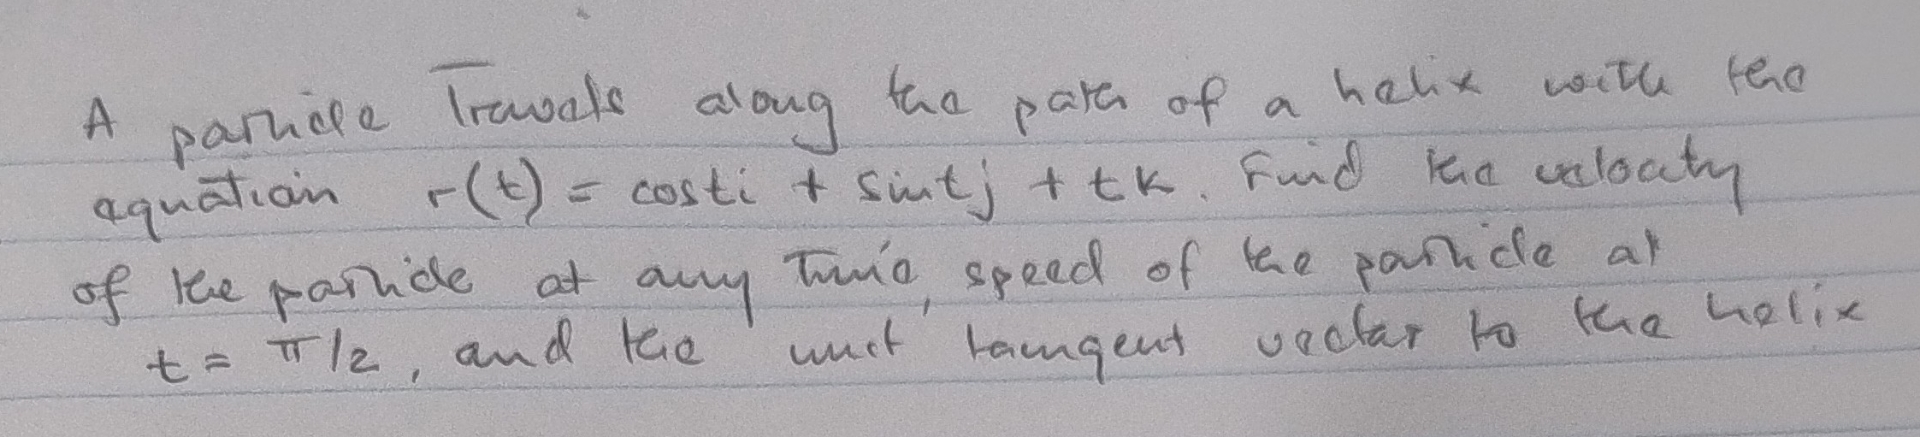 A particle Travels along the path of a helix with the
equation r(t) = costi + sintj + tk. Find the velocity
of the particle at any Time, speed of the particle at
t = π/2, and the unit tangent vector to the helix